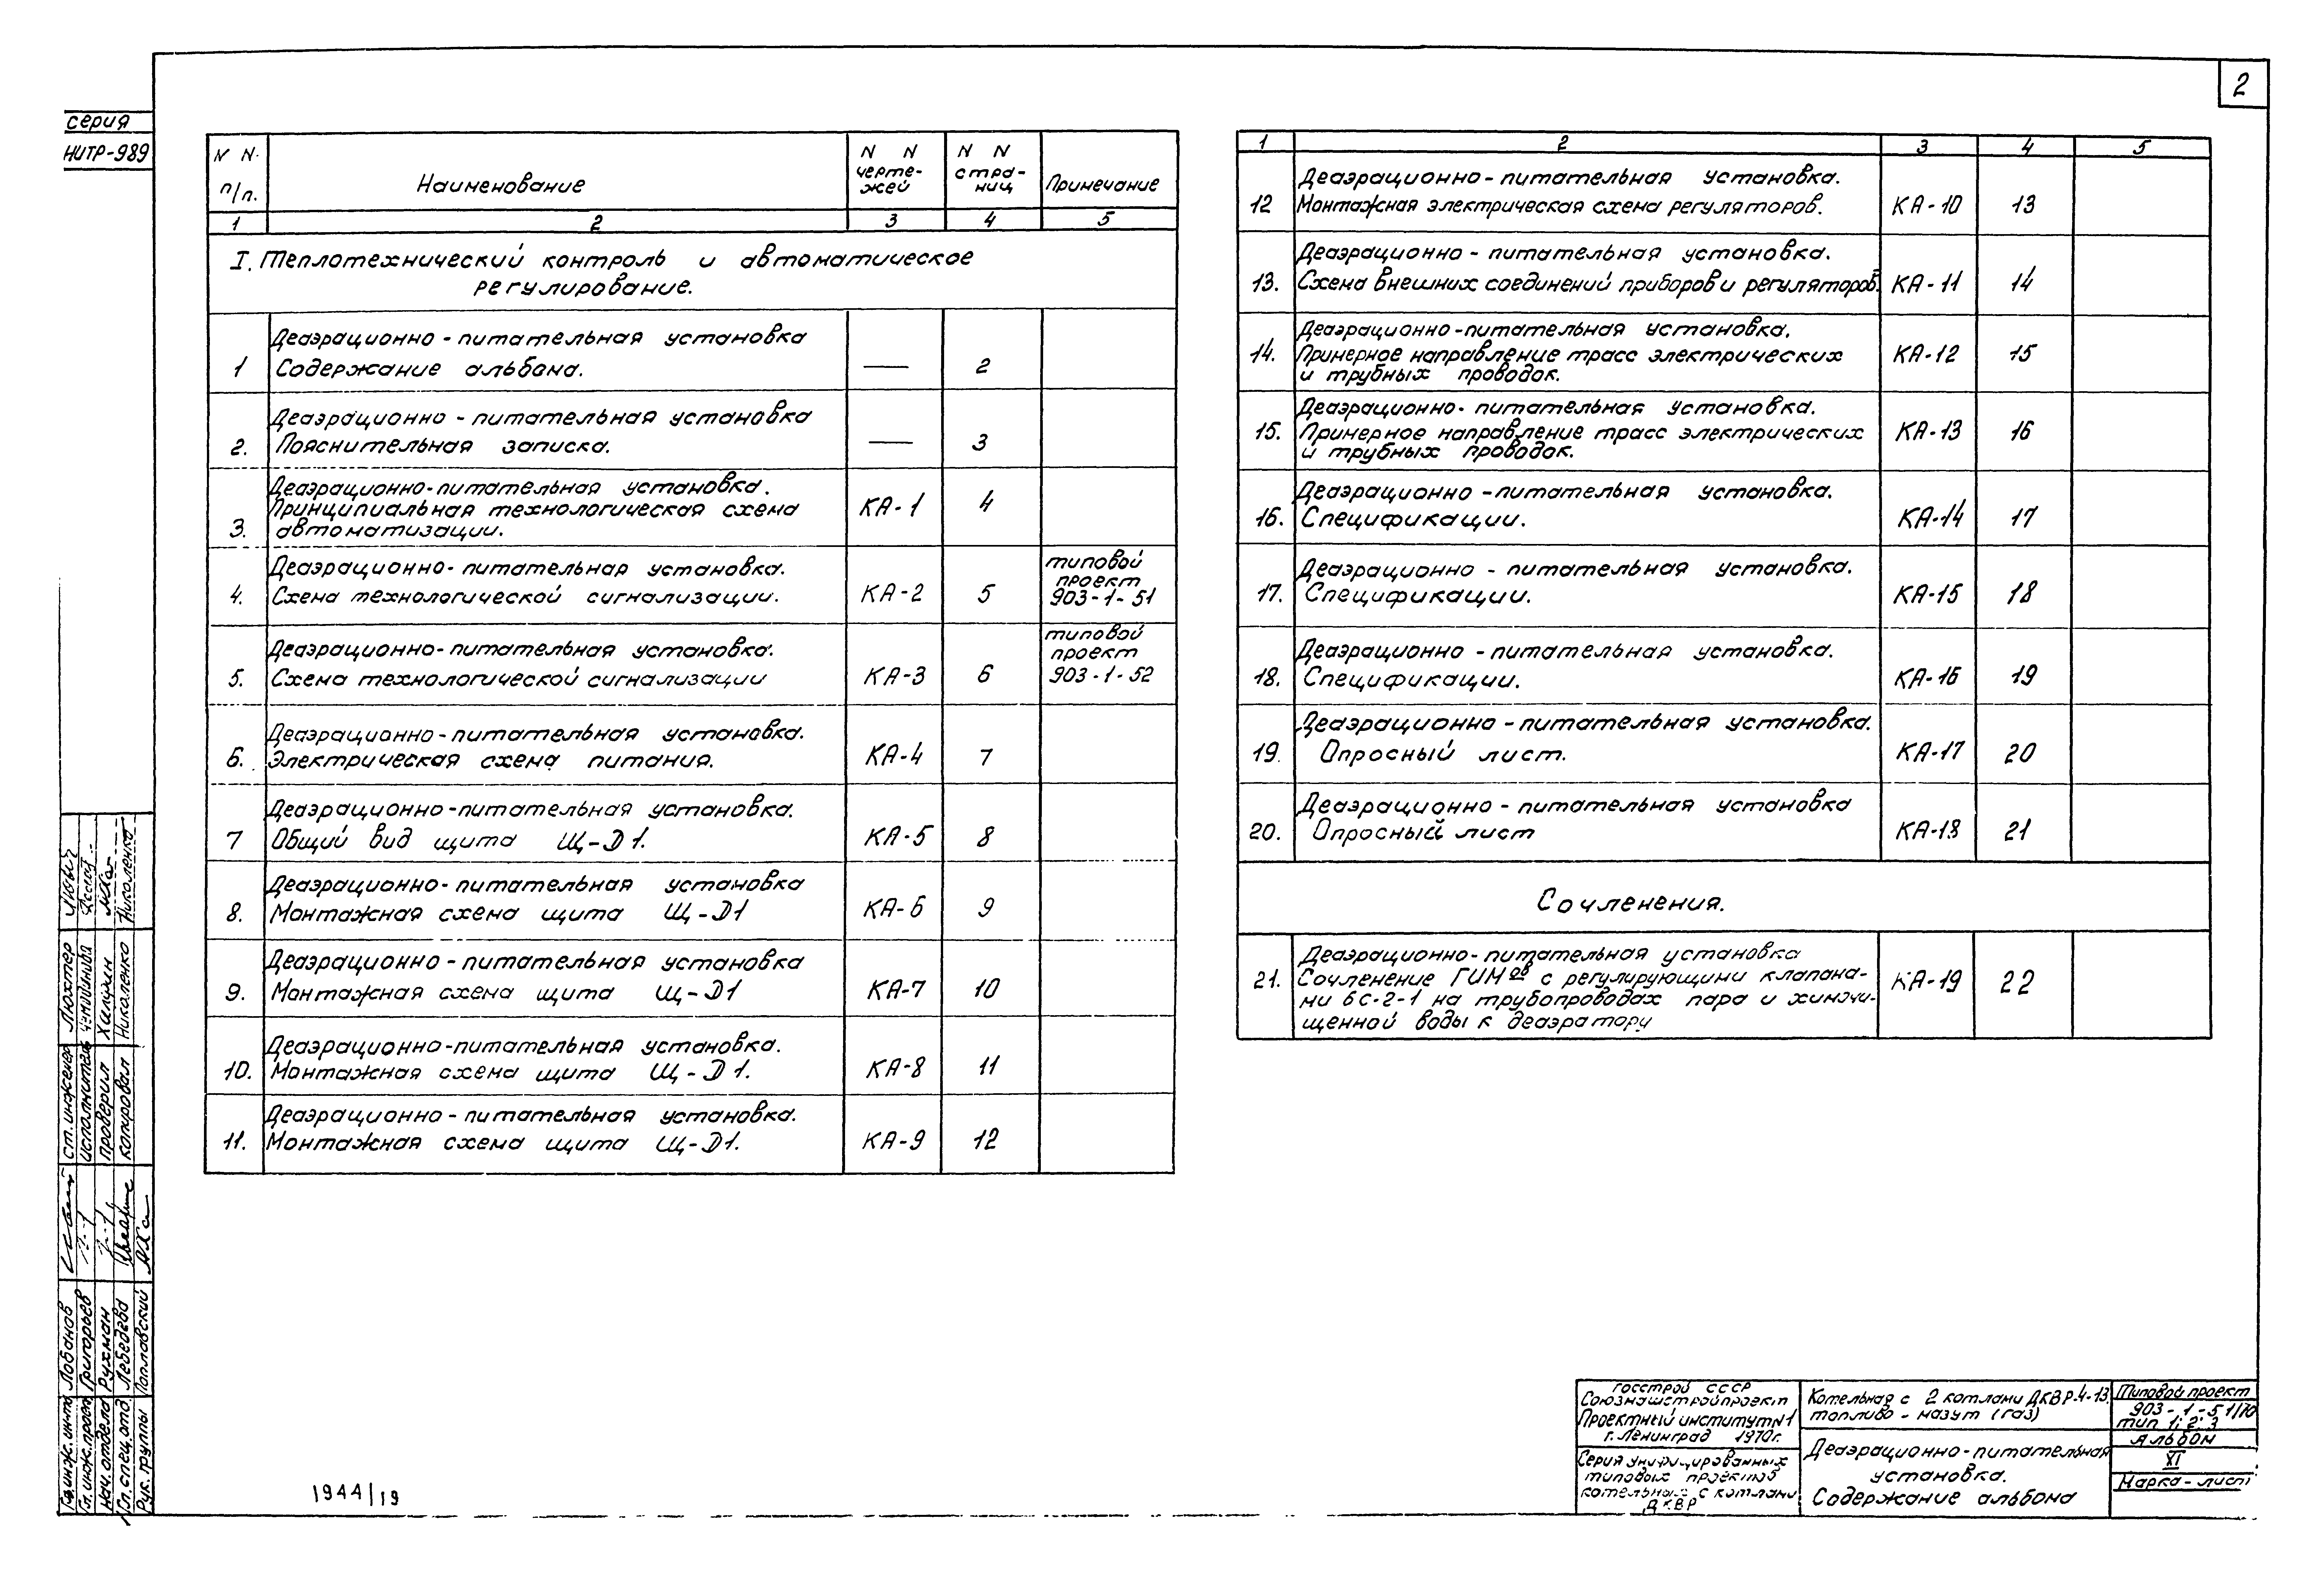 2
серия
НИТР-989
N N п/п.
Наименование
N N чертежей
N N страниц
Примечание
1 2 3 4 5
I. Теплотехнический контроль и автоматическое
регулирование.
1 Деаэрационно-питательная установка
Содержание альбома. — 2
2. Деаэрационно-питательная установка
Пояснительная записка. — 3
3. Деаэрационно-питательная установка.
Принципиальная технологическая схема КА-1 4
автоматизации.
4. Деаэрационно-питательная установка.
Схема технологической сигнализации. КА-2 5
типовой
проект
903-1-51
5. Деаэрационно-питательная установка.
Схема технологической сигнализации КА-3 6
типовой
проект
903-1-52
6. Деаэрационно-питательная установка.
Электрическая схема питания. КА-4 7
7 Деаэрационно-питательная установка.
Общий вид щита Щ-D1. КА-5 8
8. Деаэрационно-питательная установка
Монтажная схема щита Щ-D1 КА-6 9
9. Деаэрационно-питательная установка
Монтажная схема щита Щ-D1 КА-7 10
10. Деаэрационно-питательная установка.
Монтажная схема щита Щ-D1. КА-8 11
11. Деаэрационно-питательная установка.
Монтажная схема щита Щ-D1. КА-9 12
1 2 3 4 5
12 Деаэрационно-питательная установка.
Монтажная электрическая схема регуляторов. КА-10 13
13. Деаэрационно-питательная установка.
Схема внешних соединений приборов и регуляторов. КА-11 14
14. Деаэрационно-питательная установка.
Примерное направление трасс электрических КА-12 15
и трубных проводок.
15. Деаэрационно-питательная установка.
Примерное направление трасс электрических КА-13 16
и трубных проводок.
16. Деаэрационно-питательная установка.
Спецификации. КА-14 17
17. Деаэрационно-питательная установка.
Спецификации. КА-15 18
18. Деаэрационно-питательная установка.
Спецификации. КА-16 19
19. Деаэрационно-питательная установка.
Опросный лист. КА-17 20
20. Деаэрационно-питательная установка
Опросный лист КА-18 21
Сочленения.
21. Деаэрационно-питательная установка
Сочленение ГИМов с регулирующими клапана- КА-19 22
ми 6с-2-1 на трубопроводах пара и химочи-
щенной воды к деаэратору
Госстрой СССР
Союзмашстройпроект
Проектный институт N1
г. Ленинград 1970г.
Серия унифицированных
типовых проектов
котельных с котлами
ДКВР
Котельная с 2 котлами ДКВР-4-13
топливо - мазут (газ)
Деаэрационно-питательная
установка.
Содержание альбома
Типовой проект
903-1-51/70
тип 1; 2; 3
Альбом
XI
Марка-лист
1944/19
Гл. инж. инта Лобанов
Гл. инж. проек Григорьев
Нач. отдела Рухман
Гл. спец. отд. Лебедева
Рук. группы Поплавский
Ст. инженер Люхтер
Исполнитель
Проверил Халухин
Копировал Николенко Николенко